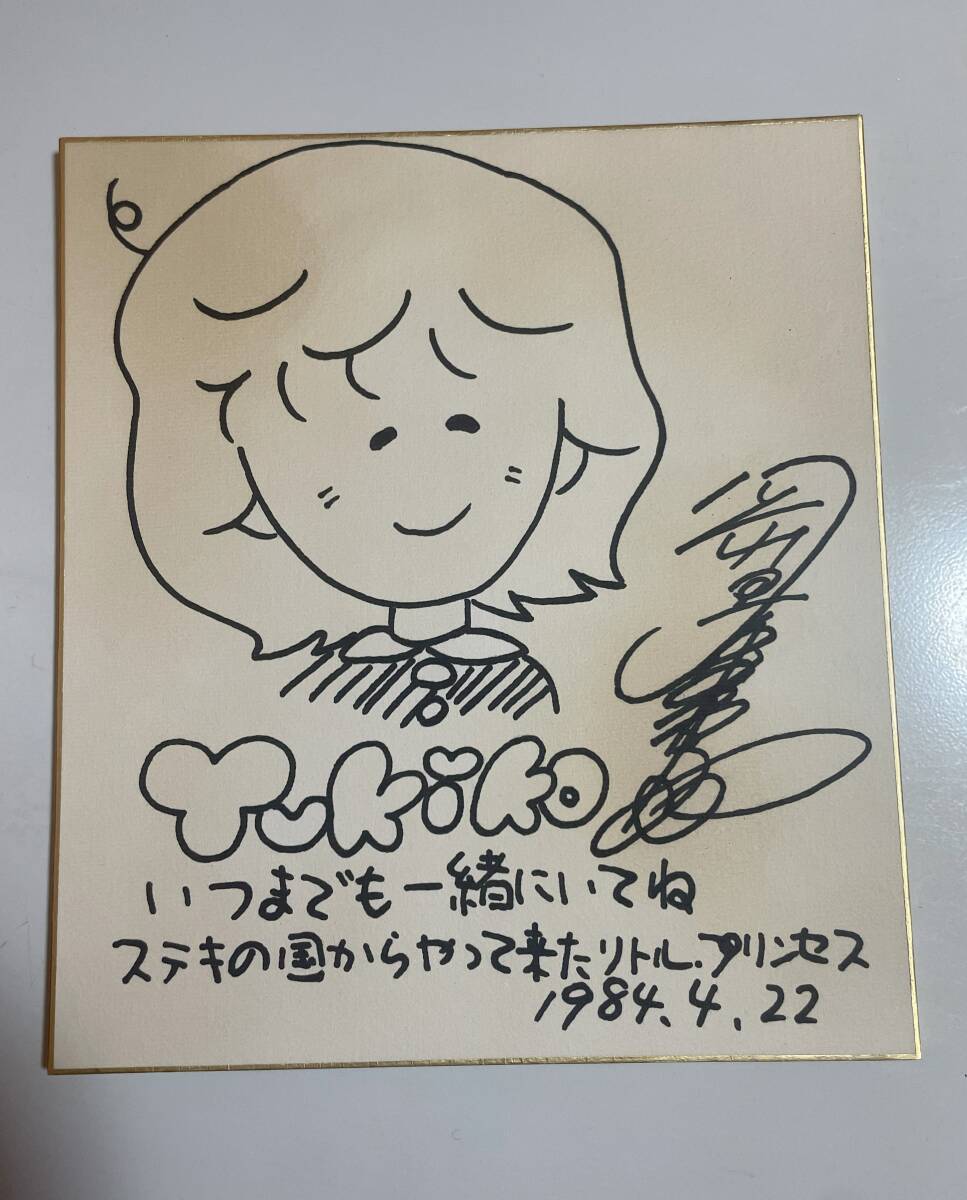 Yukiko
いつまでも一緒にいてね
ステキの国からやって来たリトル・プリンセス
1984.4.22